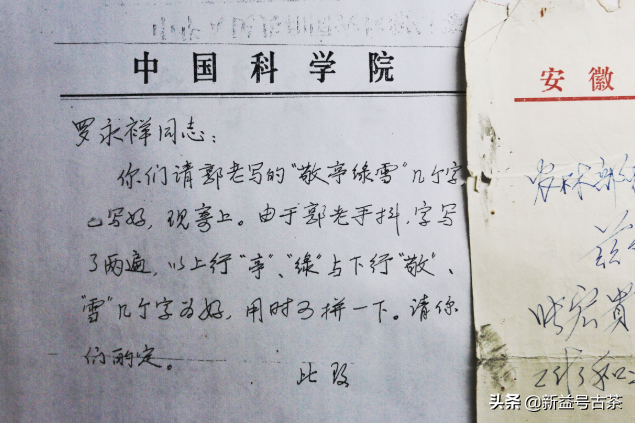 中国科学院
罗永祥同志：
你们请郭老写的“敬亭绿雪”几个字
已写好，现寄上。由于郭老手抖，字写
了两遍，以上行“亭”、“绿”与下行“敬”、
“雪”几个字为好，用时可拼一下。请你
们酌定。
此致
安徽
农林部
兹
张宏贵
工作和
头条 @新益号古茶